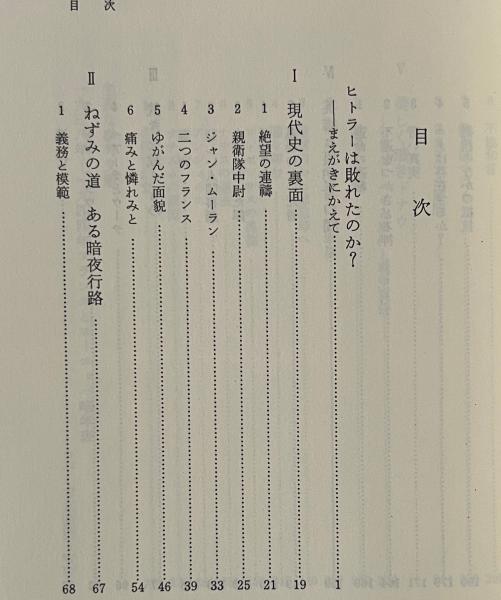 目 次
目 次
ヒトラーは敗れたのか?
――まえがきにかえて……………………1
Ⅰ 現代史の裏面……………………19
1 絶望の連禱……………………21
2 親衛隊中尉……………………25
3 ジャン・ムーラン……………………33
4 二つのフランス……………………39
5 ゆがんだ面貌……………………46
6 痛みと憐れみと……………………54
Ⅱ ねずみの道 ある暗夜行路……………………67
1 義務と模範……………………68